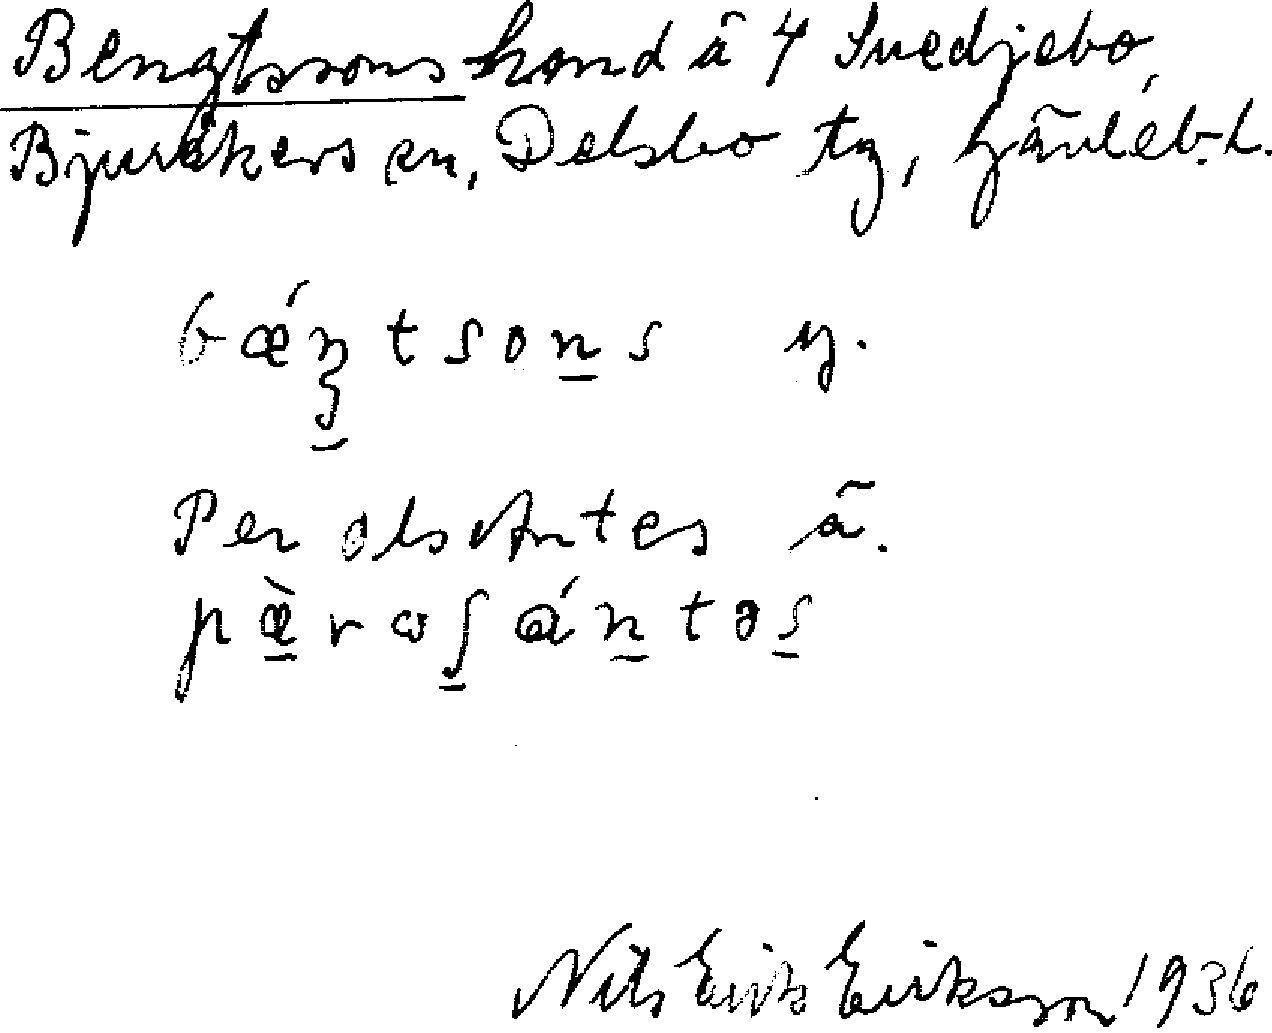 Bengtssons hand å 4 Svedjebo,
Bjuråkers sn, Delsbo tg, Gävleb. L.
bǽŋtsons y.
Per ols Antes ä.
pæ̀r ωʃ ántəs
Nils Eriks Eriksson 1936